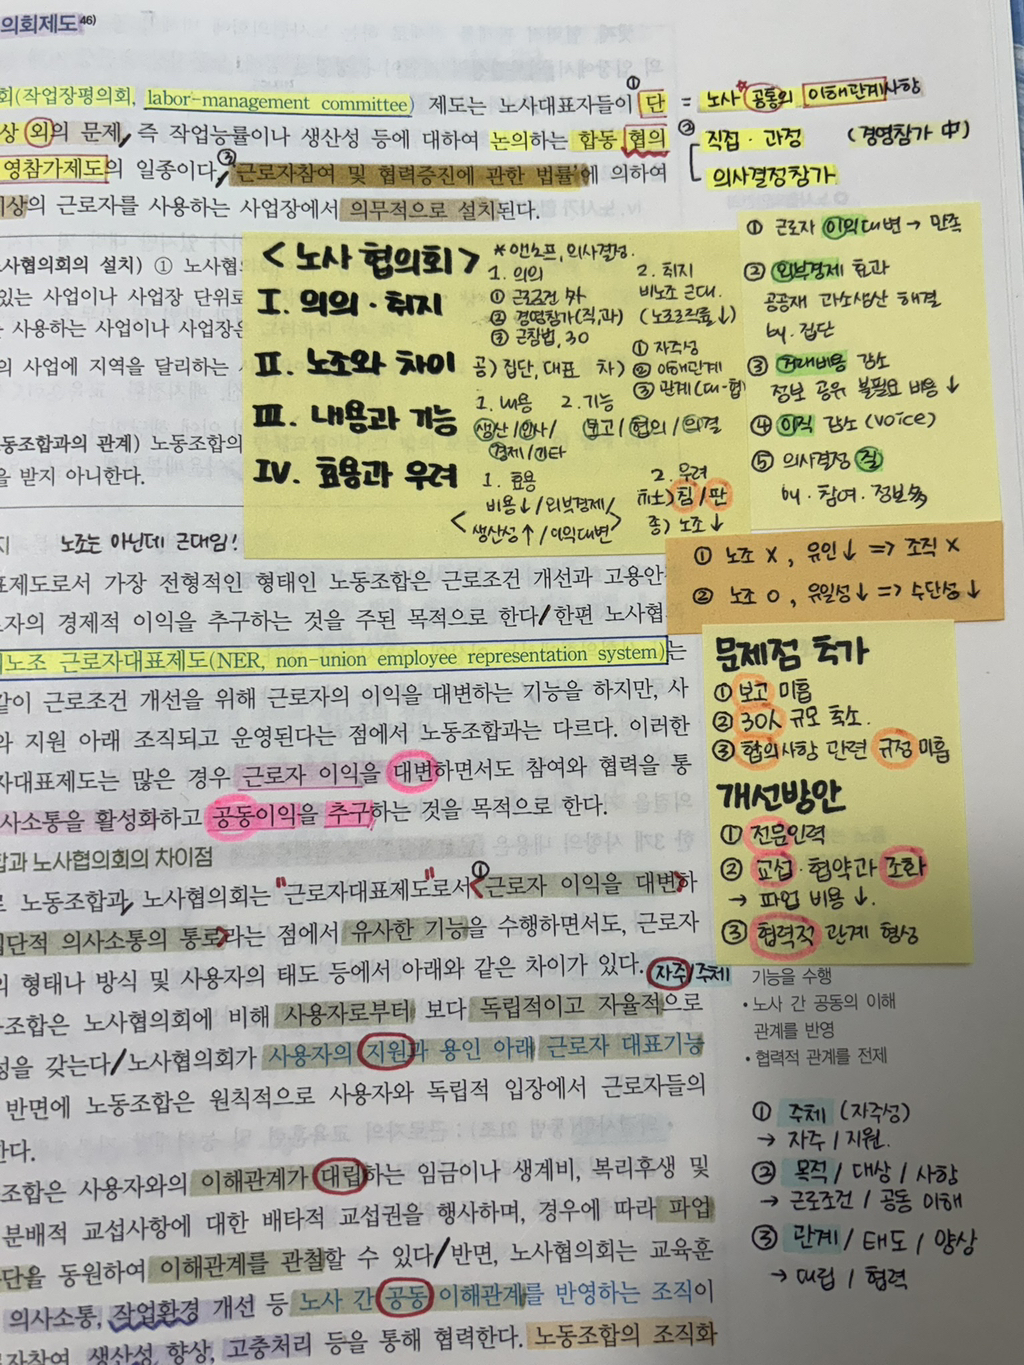 의회제도46)
회(작업장평의회, labor-management committee) 제도는 노사대표자들이 ① 단
상 외의 문제, 즉 작업능률이나 생산성 등에 대하여 논의하는 합동 협의
영참가제도의 일종이다. ③ 근로자참여 및 협력증진에 관한 법률에 의하여
이상의 근로자를 사용하는 사업장에서 의무적으로 설치된다.
= 노사 공통의 이해관계사항
② 직접·과정 (경영참가 中)
의사결정참가
노사협의회의 설치) ① 노사협
있는 사업이나 사업장 단위로
사용하는 사업이나 사업장은
의 사업에 지역을 달리하는
동조합과의 관계) 노동조합의
을 받지 아니한다.
<노사 협의회>
*앤소프, 의사결정.
I. 의의·취지
1. 의의
① 근로조건 外
② 경영참가(직,과)
③ 근참법, 30
2. 취지
비노조 근대.
(노조조직률↓)
II. 노조와 차이
공) 집단, 대표 차)
① 자주성
② 이해관계
③ 관계(대-협)
III. 내용과 기능
1. 내용 2. 기능
생산/인사/ 보고/협의/의결
경제/기타
IV. 효용과 우려
1. 효용
비용↓/외부경제/
생산성↑/이익대변
2. 우려
힘/판
종) 노조↓
① 근로자 이익대변 → 만족
② 외부경제 효과
공공재 과소생산 해결
by. 집단
③ 거래비용 감소
정보 공유 불필요 비용↓
④ 이직 감소 (voice)
⑤ 의사결정 질
by. 참여·정보多
① 노조 X, 유인↓ => 조직 X
② 노조 O, 유일성↓ => 수단성↓
지 노조는 아닌데 근대임!
표제도로서 가장 전형적인 형태인 노동조합은 근로조건 개선과 고용안
로자의 경제적 이익을 추구하는 것을 주된 목적으로 한다/한편 노사협
비노조 근로자대표제도(NER, non-union employee representation system)는
같이 근로조건 개선을 위해 근로자의 이익을 대변하는 기능을 하지만, 사
와 지원 아래 조직되고 운영된다는 점에서 노동조합과는 다르다. 이러한
자대표제도는 많은 경우 근로자 이익을 대변하면서도 참여와 협력을 통
사소통을 활성화하고 공동이익을 추구하는 것을 목적으로 한다.
문제점 추가
① 보고 미흡
② 30人 규모 축소.
③ 협의사항 관련 규정 미흡
개선방안
① 전문인력
② 교섭·협약과 조화
→ 파업 비용↓.
③ 협력적 관계 형성
합과 노사협의회의 차이점
노동조합과 노사협의회는 "근로자대표제도"로서 ① <근로자 이익을 대변하
집단적 의사소통의 통로>라는 점에서 유사한 기능을 수행하면서도, 근로자
의 형태나 방식 및 사용자의 태도 등에서 아래와 같은 차이가 있다. 자주/주체
조합은 노사협의회에 비해 사용자로부터 보다 독립적이고 자율적으로
성을 갖는다/노사협의회가 사용자의 지원과 용인 아래 근로자 대표기능
반면에 노동조합은 원칙적으로 사용자와 독립적 입장에서 근로자들의
한다.
조합은 사용자와의 이해관계가 대립하는 임금이나 생계비, 복리후생 및
분배적 교섭사항에 대한 배타적 교섭권을 행사하며, 경우에 따라 파업
수단을 동원하여 이해관계를 관철할 수 있다/반면, 노사협의회는 교육훈
의사소통, 작업환경 개선 등 노사 간 공동 이해관계를 반영하는 조직이
로자참여 생산성 향상, 고충처리 등을 통해 협력한다. 노동조합의 조직화
기능을 수행
• 노사 간 공동의 이해
관계를 반영
• 협력적 관계를 전제
① 주체 (자주성)
→ 자주/지원.
② 목적/대상/사항
→ 근로조건/공동 이해
③ 관계/태도/양상
→ 대립/협력